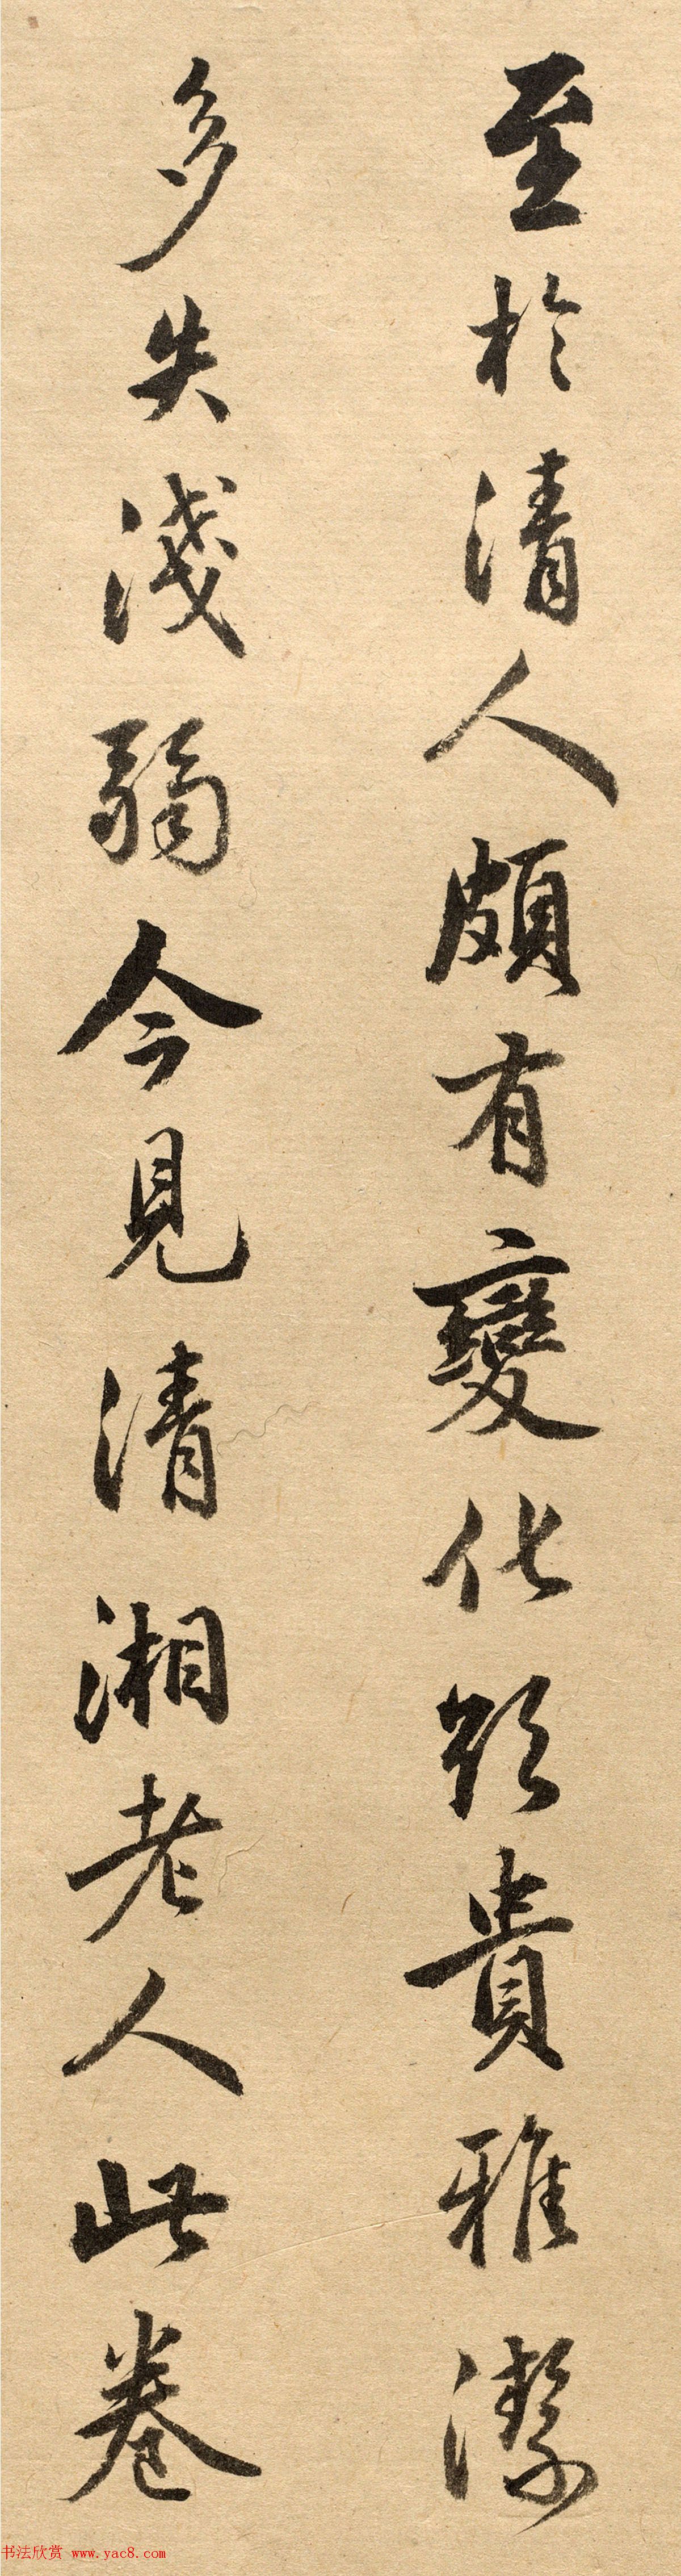 至於清人頗有變化欵貴雅潔
多失淺弱今見清湘老人此卷
书法欣赏 www.yac8.com